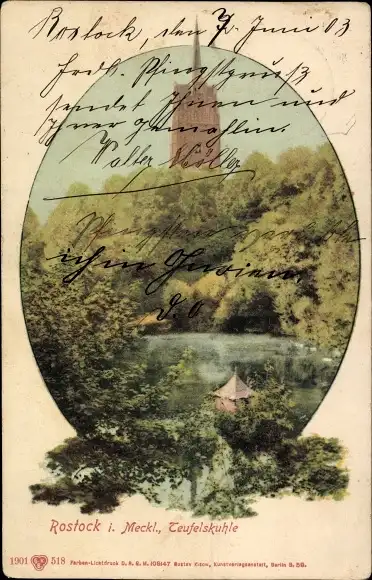 Rostock, den 7. Juni 03
Frdl. Pfingstgruß
sendet Ihnen und
Ihrer Gemahlin.
Walter Köller
Pfingsten
ich in
D. O
Rostock i. Meckl., Teufelskuhle
1901 518 Farben-Lichtdruck D. R. G. M. 108147 Gustav Kühn, Kunstverlagsanstalt, Berlin S. 58.